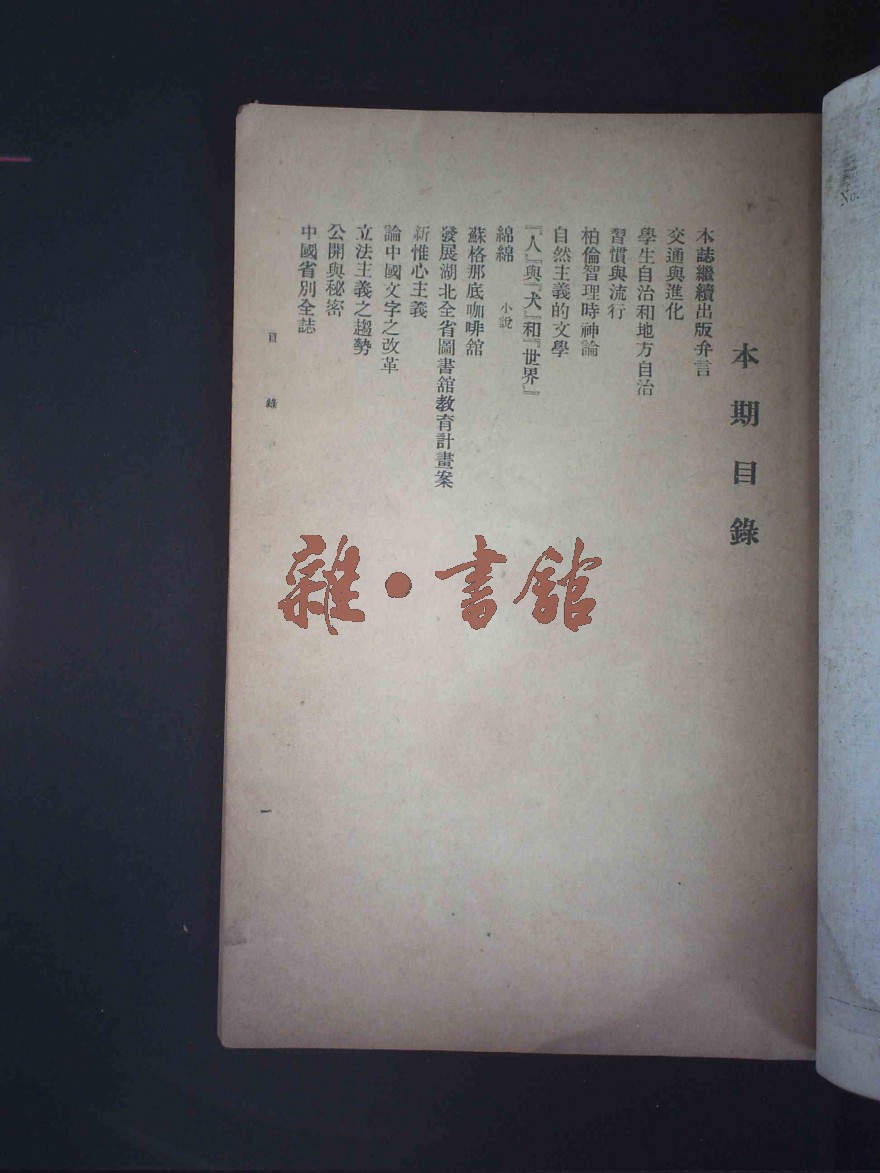 本期目錄
本誌繼續出版弁言
交通與進化
學生自治和地方自治
習慣與流行
柏倫智理時神論
自然主義的文學
『人』與『犬』和『世界』
綿綿 小說
蘇格那底咖啡舘
發展湖北全省圖書舘教育計畫案
新惟心主義
論中國文字之改革
立法主義之趨勢
公開與秘密
中國省別全誌
目錄
一
雜·書舘
No.